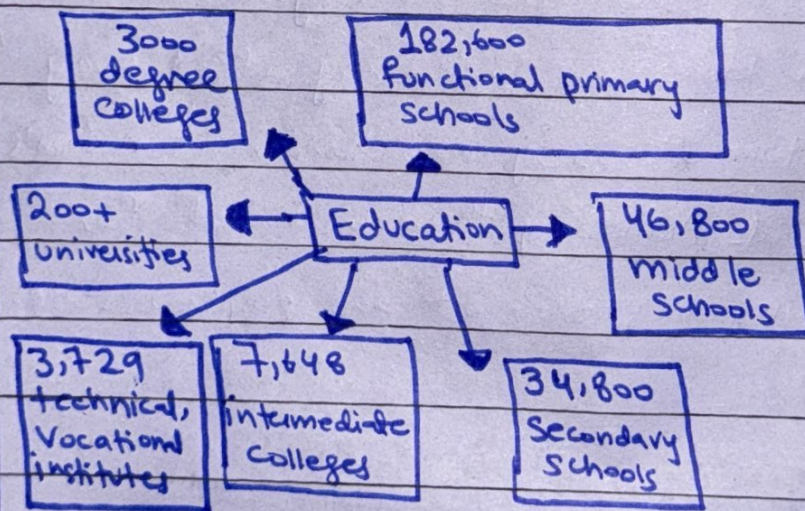 3000
degree
colleges
182,600
functional primary
schools
200+
universities
Education
46,800
middle
schools
3,729
technical,
Vocational
institutes
7,648
intermediate
colleges
34,800
Secondary
schools